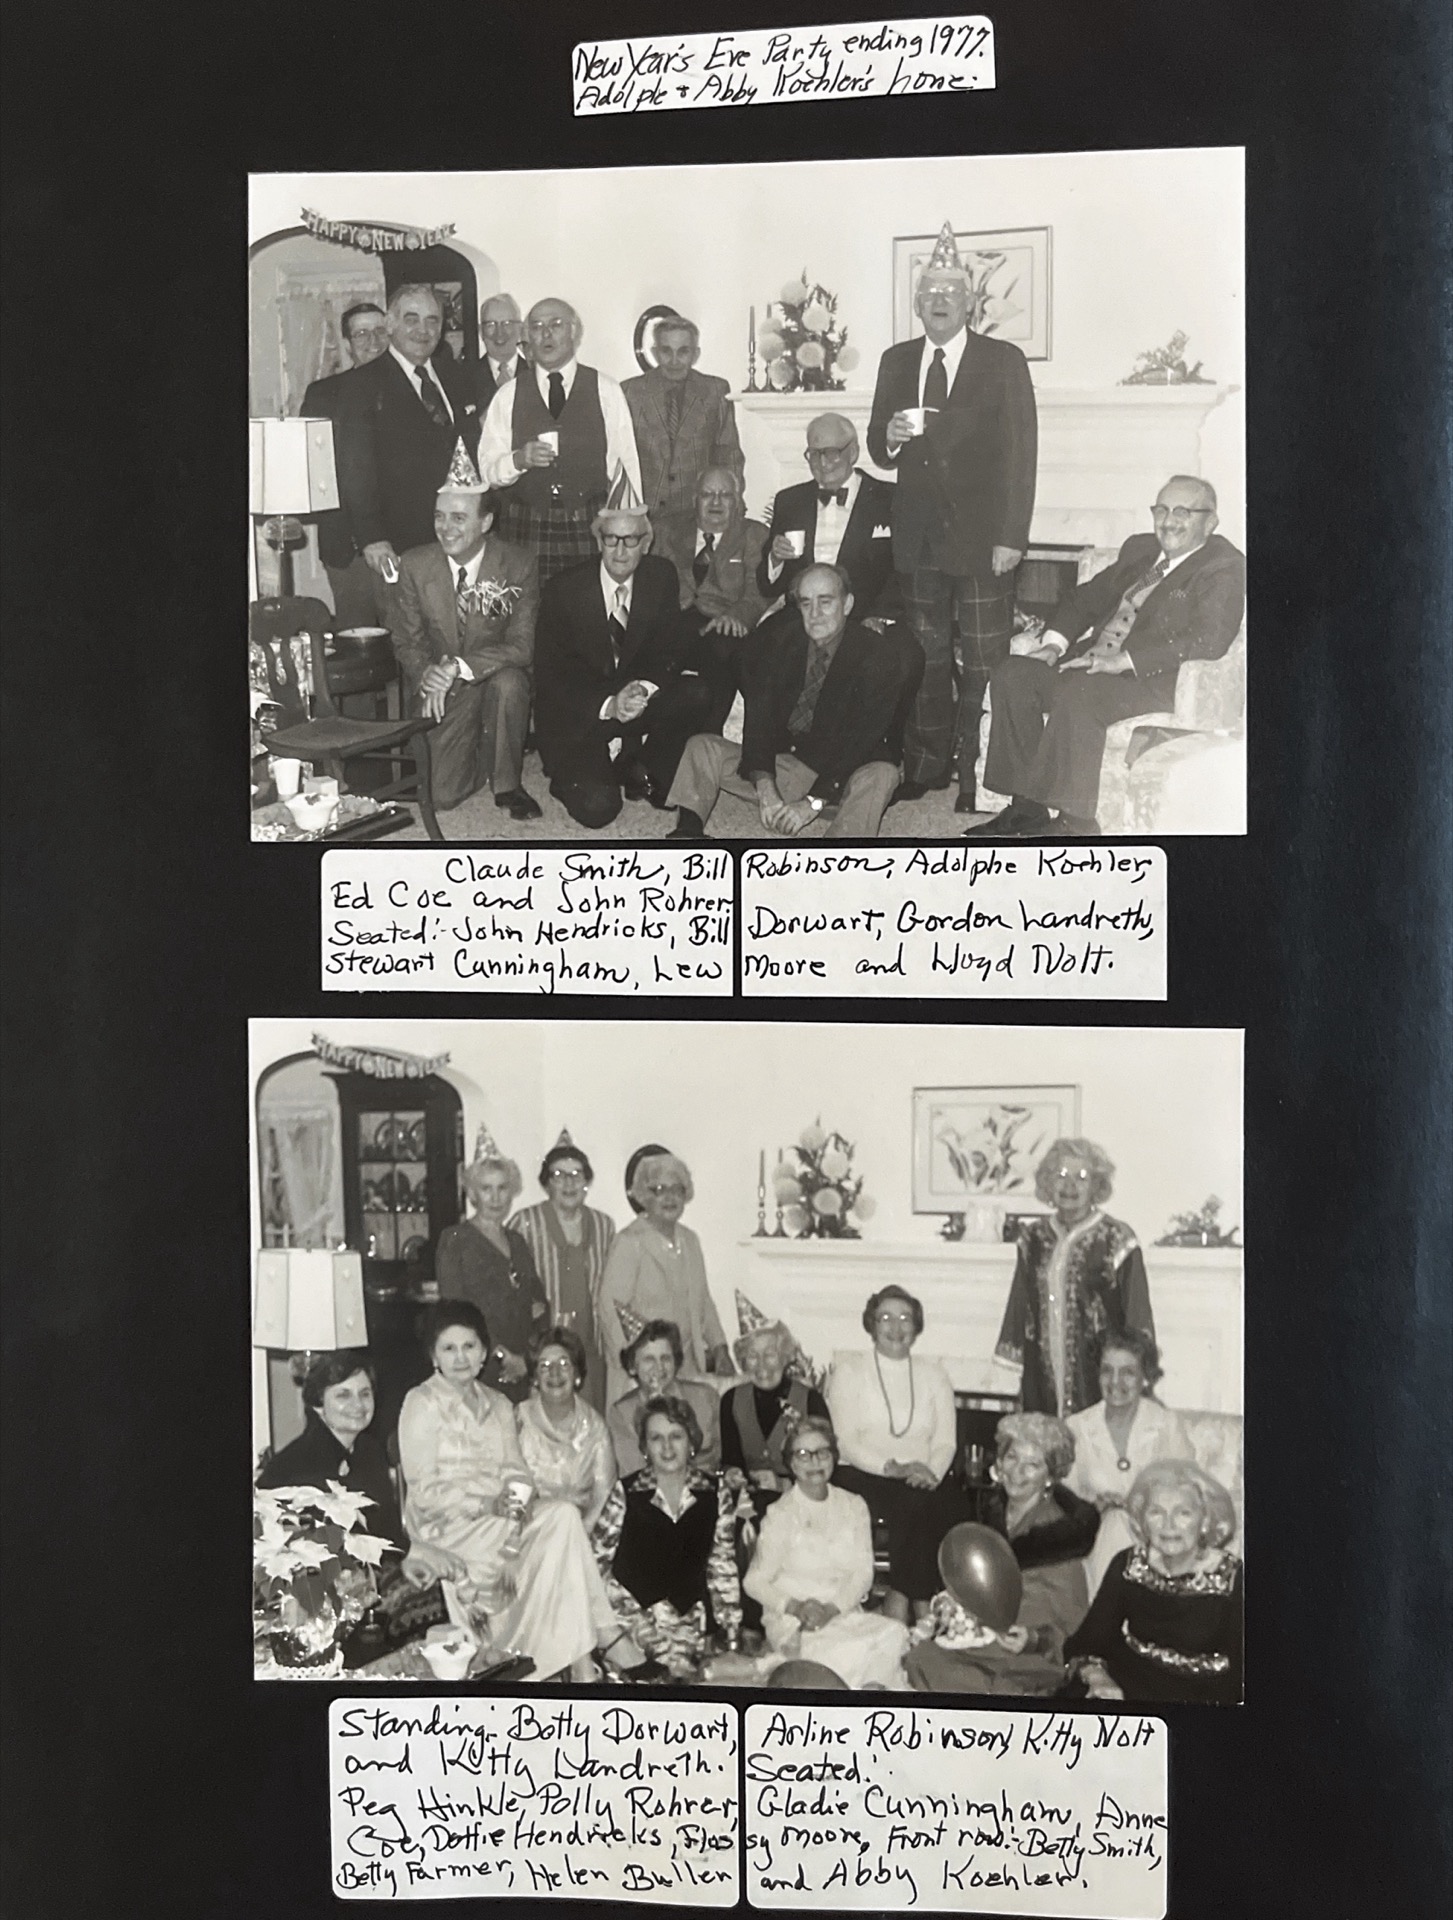 New Year's Eve Party ending 1977.
Adolple & Abby Koehler's home.
HAPPY NEW YEAR
Claude Smith, Bill Robinson, Adolphe Koehler,
Ed Coe and John Rohrer.
Seated:- John Hendricks, Bill Dorwart, Gordon Landreth,
Stewart Cunningham, Lew Moore and Lloyd Nolt.
HAPPY NEW YEAR
Standing:- Betty Dorwart, Arline Robinson, Kitty Nolt
and Kitty Landreth. Seated:
Peg Hinkle, Polly Rohrer, Gladie Cunningham, Anne
Coe, Dottie Hendricks, Flossy Moore, Front row:- Betty Smith,
Betty Farmer, Helen Buller and Abby Koehler.